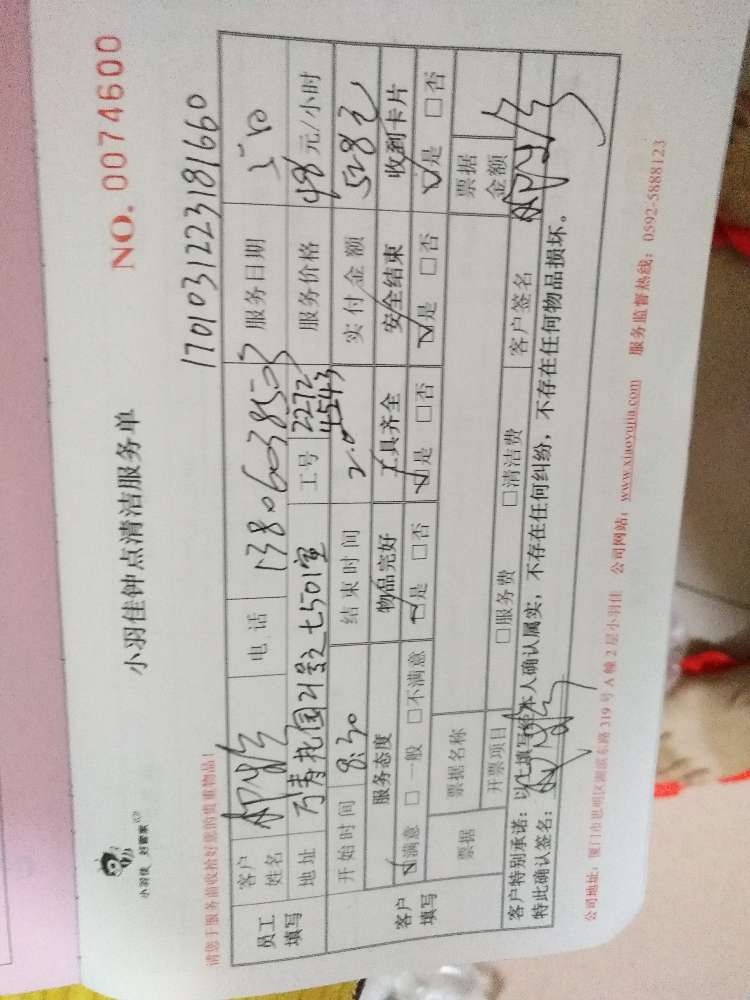 小羽佳 好管家
小羽佳钟点清洁服务单
NO. 0074600
请您于服务前收拾好您的贵重物品!
1701031223181660
员工填写
客户姓名
电话 13806038503
服务日期
地址 万寿北园21号之七501室
工号 2272 4543
服务价格 48元/小时
开始时间 8:30
结束时间
实付金额 528元
客户填写
服务态度 物品完好 工具齐全 安全结束 收到卡片
☑满意 □一般 □不满意 ☑是 □否 ☑是 □否 ☑是 □否 ☑是 □否
票据
票据名称
票据金额
开票项目 □服务费 □清洁费
客户签名
客户特别承诺:以上填写经本人确认属实,不存在任何纠纷,不存在任何物品损坏。
特此确认签名:
公司地址:厦门市思明区湖滨东路319号A幢2层小羽佳 公司网站:www.xiaoyujia.com 服务监督热线:0592-5888123